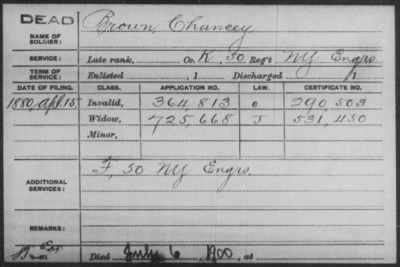 DEAD
NAME OF SOLDIER: Brown, Chancey
SERVICE: Late rank, Co. K, 50 Reg't NY Engrs
TERM OF SERVICE: Enlisted , 1 Discharged , 1
DATE OF FILING. CLASS. APPLICATION NO. LAW. CERTIFICATE NO.
1880 Apl. 15 Invalid, 364,813 290,503
Widow, 725,668 J 531,450
Minor,
ADDITIONAL SERVICES: F, 50 NY Engrs.
REMARKS:
Died July 6, 1900, at